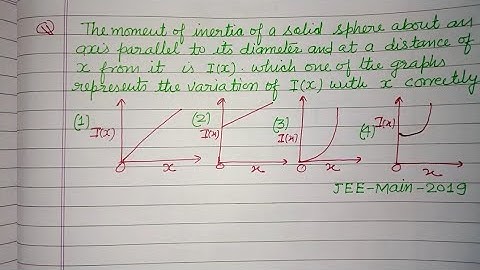 Q The moment of inertia of a solid sphere about an
axis parallel to its diameter and at a distance of
x from it is I(x). which one of the graphs
represents the variation of I(x) with x correctly
(1) (2) (3) (4)
I(x) I(x) I(x) I(x)
O x O x O x O x
JEE-Main-2019